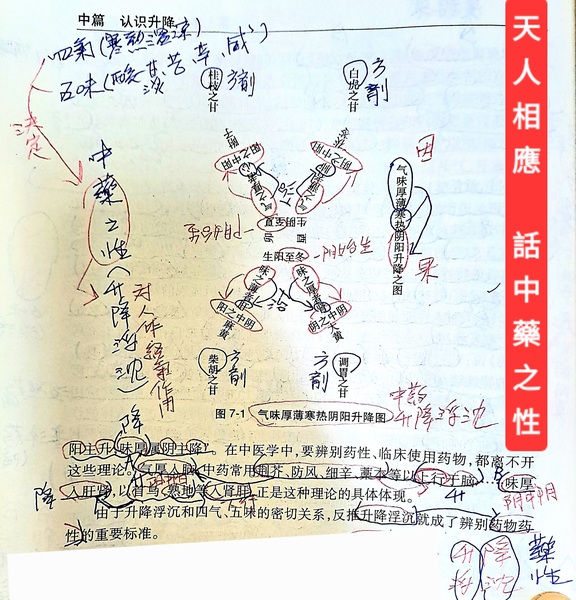 中篇 认识升降
天人相應 話中藥之性
四氣(寒热温凉)
五味(酸甘苦辛咸)
淡
决定
中藥之性(升降浮沉)
对人体经氣作用
桂枝之甘
方劑
白虎之甘
方劑
气味厚薄寒热阴阳升降之图
因
果
生阳至冬
柴胡之甘
方劑
调胃之甘
方劑
麻黄
大黄
图 7-1 气味厚薄寒热阴阳升降图
中药
升降浮沉
降
阳主升,味厚属阴主降”。在中医学中,要辨别药性、临床使用药物,都离不开
这些理论。气厚入脑,中药常用荆芥、防风、细辛、藁本等以上行于脑
味厚
降
入肝肾,以首乌、熟地等入肾肝,正是这种理论的具体体现。
升
阴中阴
由于升降浮沉和四气、五味的密切关系,反推升降浮沉就成了辨别药物药
性的重要标准。
升降
浮沉
藥性